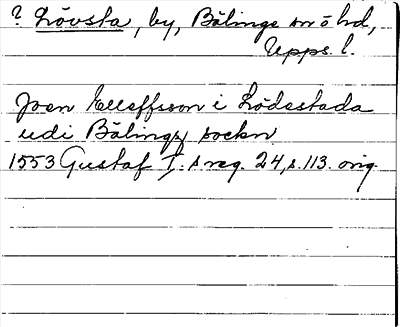 ? Lövsta, by, Bälinge sn o hd,
Upps. l.
Joen Elleffsson i Lödsstada
udi Bälings sockn
1553 Gustaf I:s reg. 24, s. 113. orig.